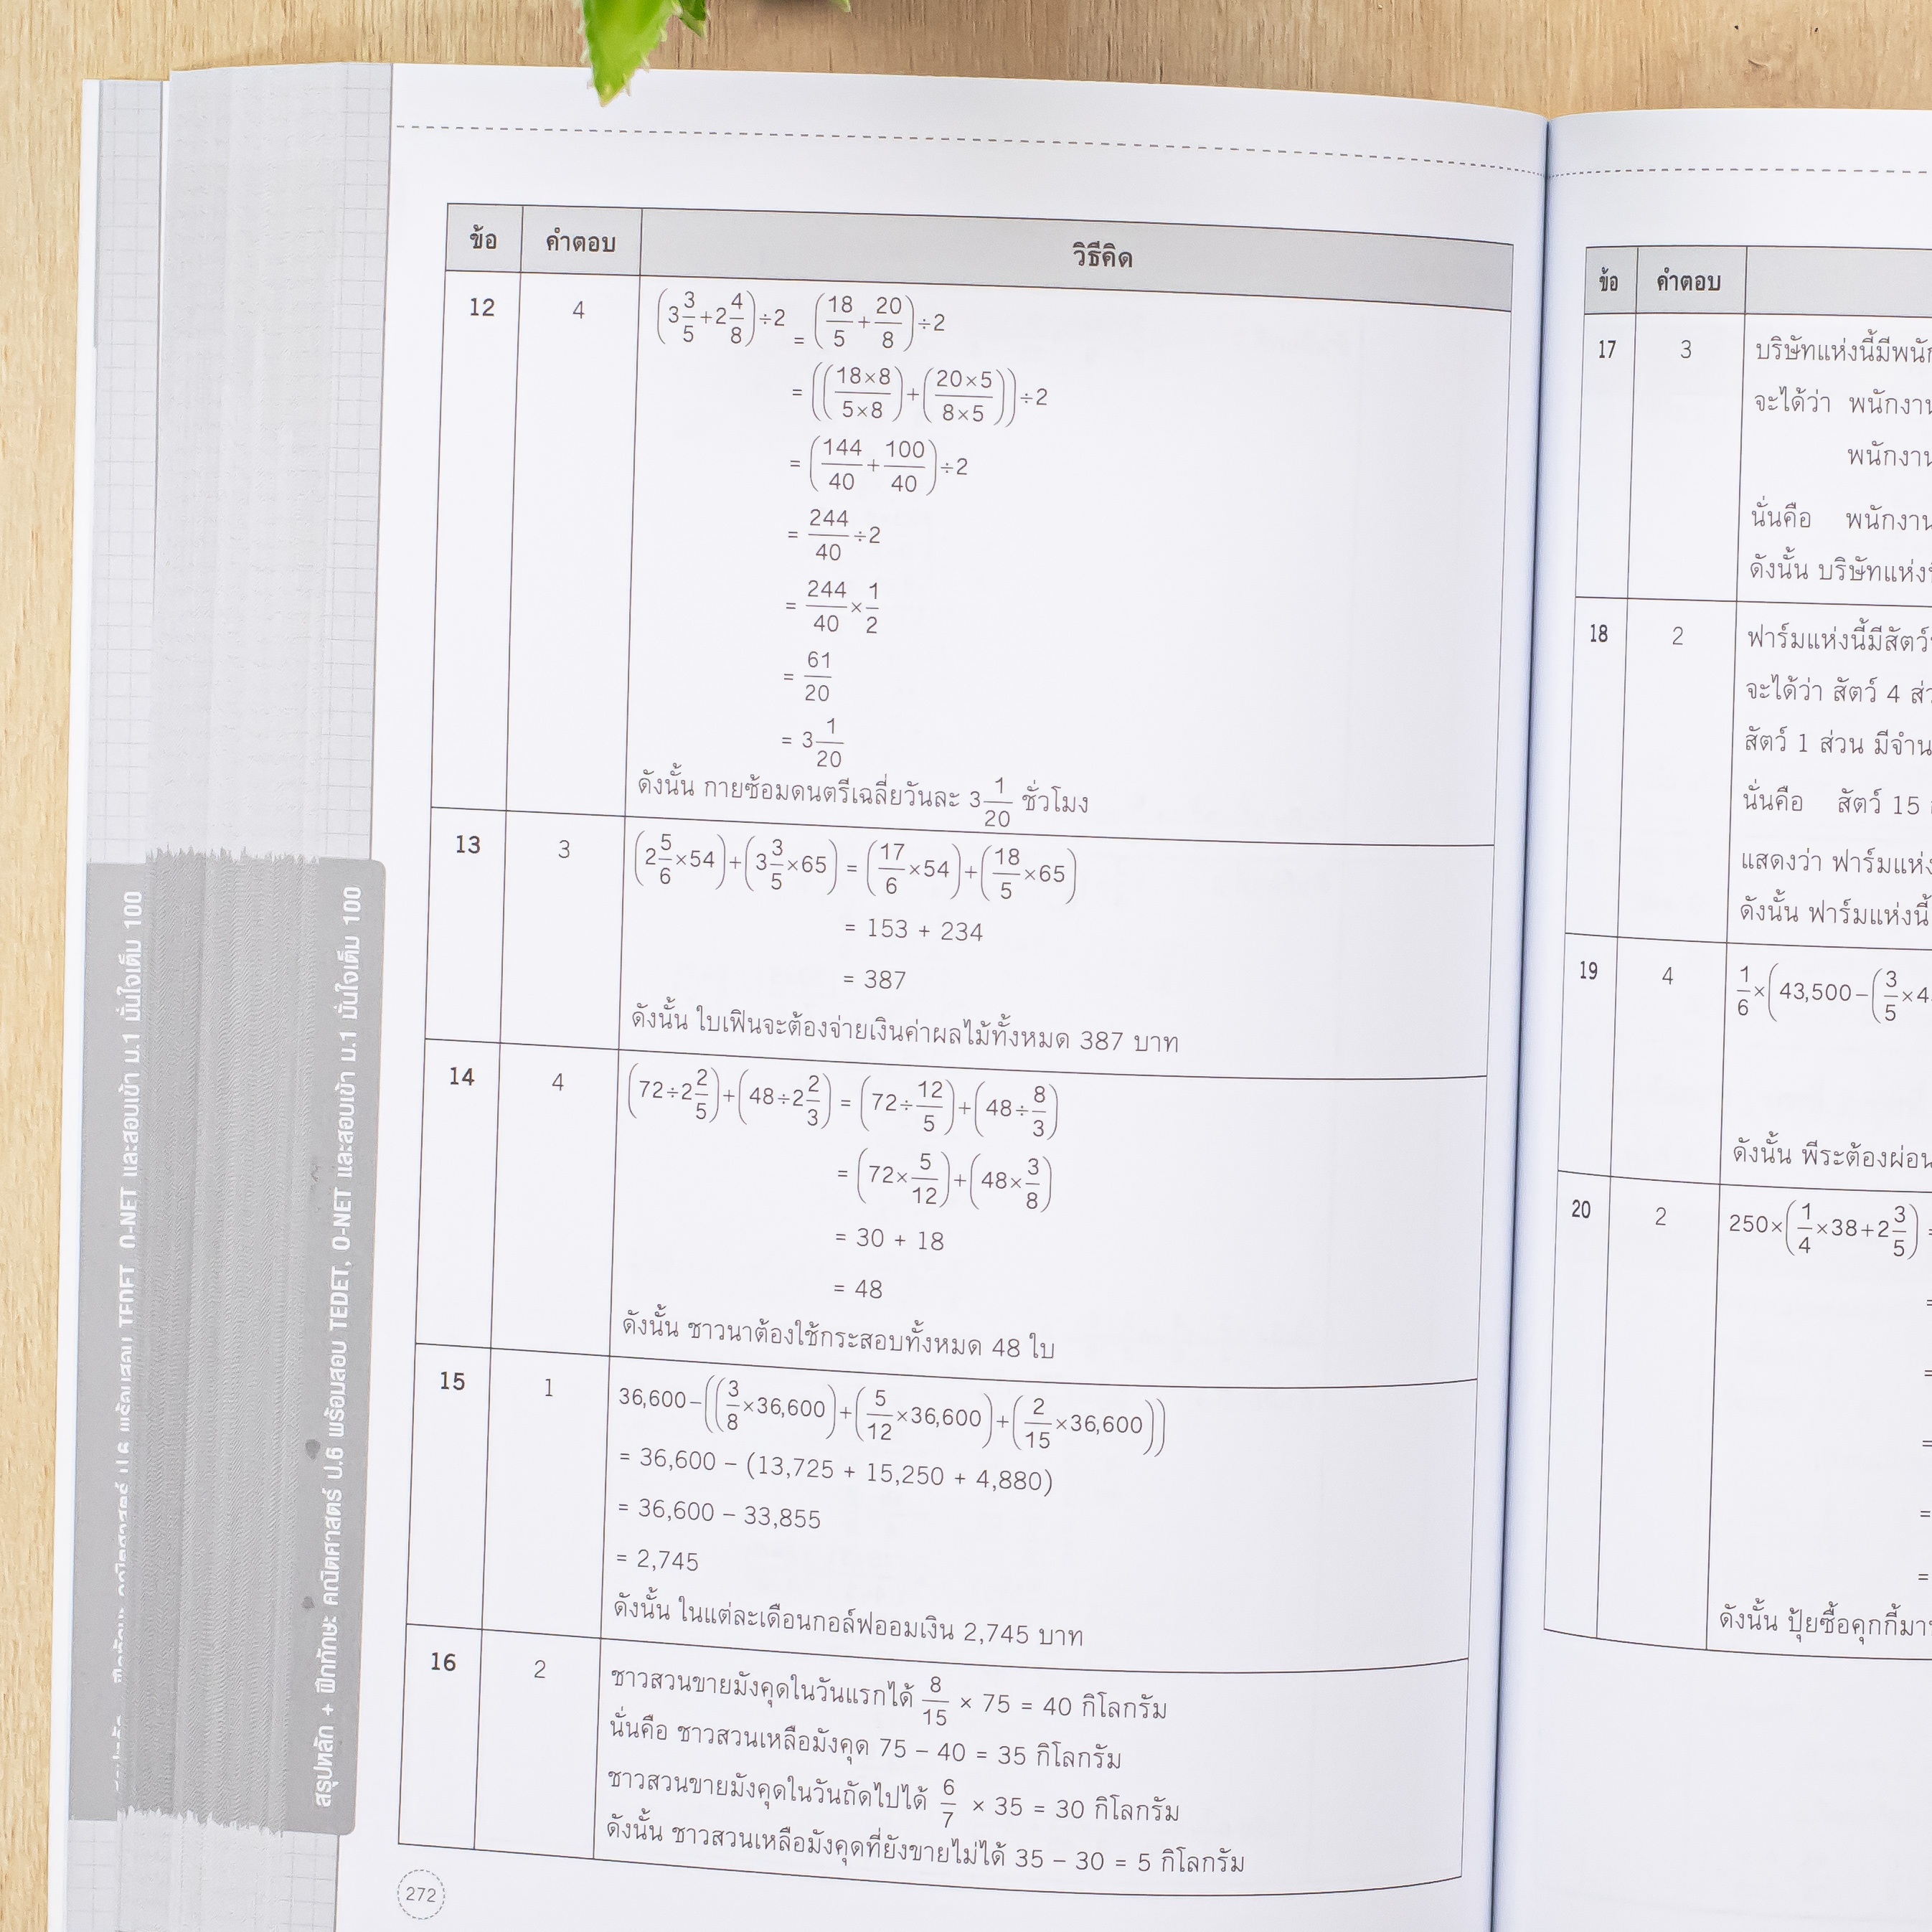 ข้อ คำตอบ วิธีคิด
12 4 (3 3/5 + 2 4/8) ÷ 2 = (18/5 + 20/8) ÷ 2
= ((18×8/5×8) + (20×5/8×5)) ÷ 2
= (144/40 + 100/40) ÷ 2
= 244/40 ÷ 2
= 244/40 × 1/2
= 61/20
= 3 1/20
ดังนั้น กายซ้อมดนตรีเฉลี่ยวันละ 3 1/20 ชั่วโมง
13 3 (2 5/6 × 54) + (3 3/5 × 65) = (17/6 × 54) + (18/5 × 65)
= 153 + 234
= 387
ดังนั้น ใบเฟินจะต้องจ่ายเงินค่าผลไม้ทั้งหมด 387 บาท
14 4 (72 ÷ 2 2/5) + (48 ÷ 2 2/3) = (72 ÷ 12/5) + (48 ÷ 8/3)
= (72 × 5/12) + (48 × 3/8)
= 30 + 18
= 48
ดังนั้น ชาวนาต้องใช้กระสอบทั้งหมด 48 ใบ
15 1 36,600 – ((3/8 × 36,600) + (5/12 × 36,600) + (2/15 × 36,600))
= 36,600 – (13,725 + 15,250 + 4,880)
= 36,600 – 33,855
= 2,745
ดังนั้น ในแต่ละเดือนกอล์ฟออมเงิน 2,745 บาท
16 2 ชาวสวนขายมังคุดในวันแรกได้ 8/15 × 75 = 40 กิโลกรัม
นั่นคือ ชาวสวนเหลือมังคุด 75 – 40 = 35 กิโลกรัม
ชาวสวนขายมังคุดในวันถัดไปได้ 6/7 × 35 = 30 กิโลกรัม
ดังนั้น ชาวสวนเหลือมังคุดที่ยังขายไม่ได้ 35 – 30 = 5 กิโลกรัม
272
สรุปหลัก + ฝึกทักษะ คณิตศาสตร์ ป.6 พร้อมสอบ TEDET, O-NET และสอบเข้า ม.1 มั่นใจเต็ม 100
O-NET และสอบเข้า ม.1 มั่นใจเต็ม 100
ข้อ คำตอบ
17 3 บริษัทแห่งนี้มีพนัก
จะได้ว่า พนักงาน
พนักงาน
นั่นคือ พนักงาน
ดังนั้น บริษัทแห่ง
18 2 ฟาร์มแห่งนี้มีสัตว์
จะได้ว่า สัตว์ 4
สัตว์ 1 ส่วน มีจำน
นั่นคือ สัตว์ 15
แสดงว่า ฟาร์มแห่ง
ดังนั้น ฟาร์มแห่งนี้
19 4 1/6 × (43,500 – (3/5 × 4
ดังนั้น พีระต้องผ่อน
20 2 250 × (1/4 × 38 + 2 3/5) =
=
=
=
=
=
ดังนั้น ปุ้ยซื้อคุกกี้มา